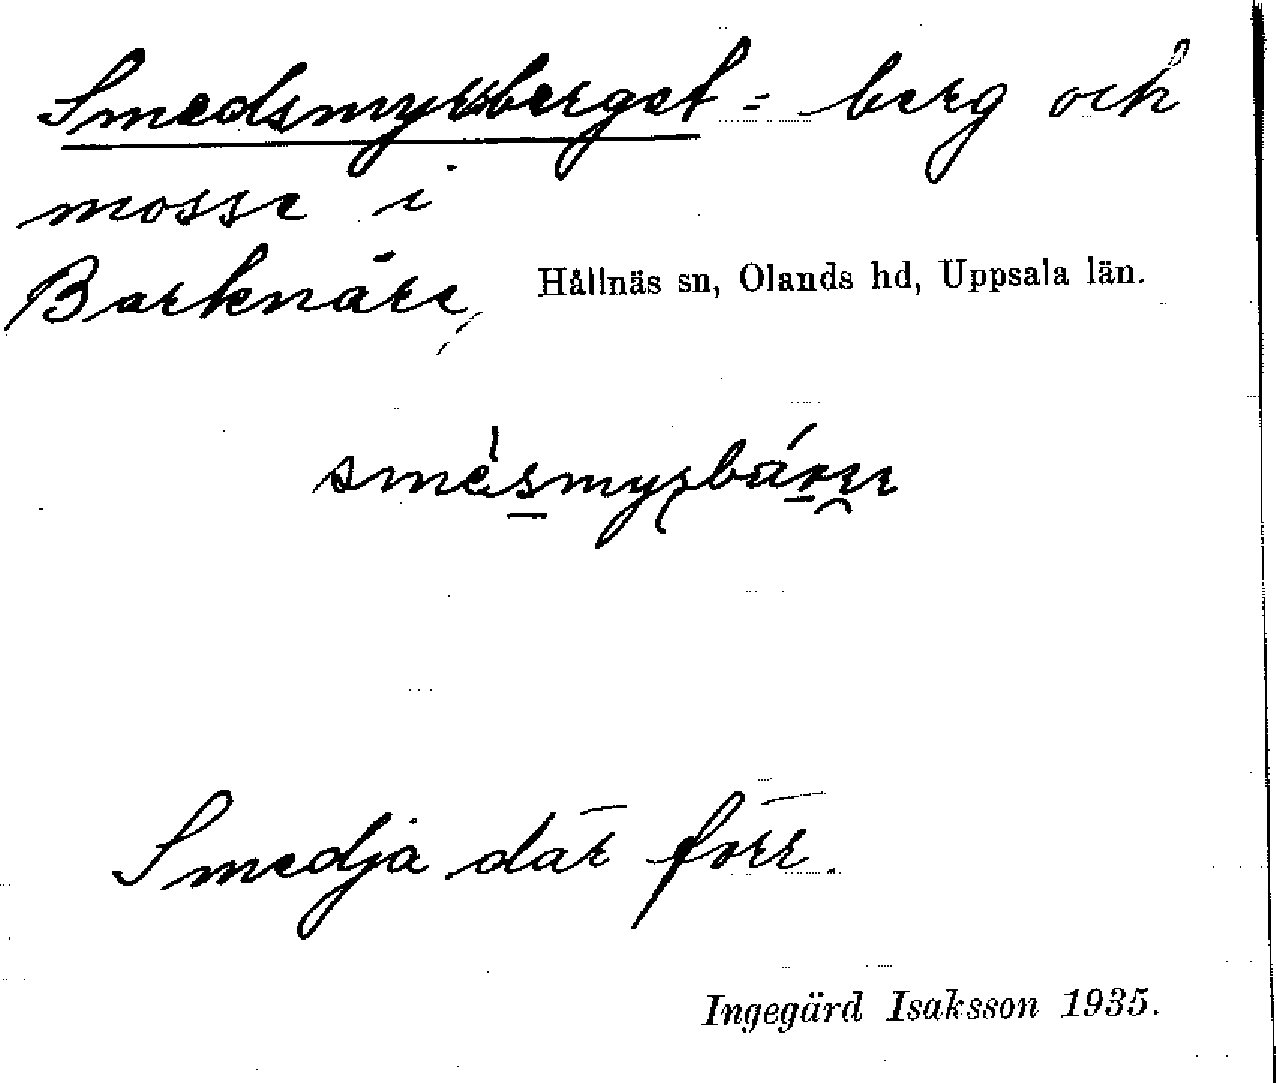 Smedsmyrsberget = berg och
mosse i
Barknåre, Hållnäs sn, Olands hd, Uppsala län.
Smedja där förr.
Ingegärd Isaksson 1935.